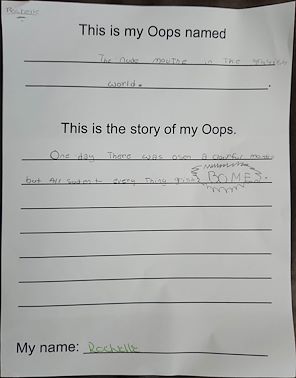 Rochelle
This is my Oops named
The rude mouthe in The
world.
This is the story of my Oops.
One day There was a
but All sudent every Thing BOMES.
My name: Rochelle